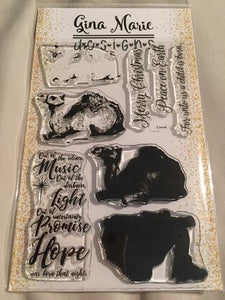 Gina Marie
D•E•S•I•G•N•S
Merry Christmas
Peace on Earth
For unto us a child is born
Camel
Out of
the silence,
Music
Out of the
darkness,
Light
Out of
uncertainty,
Promise
Hope
was born that night